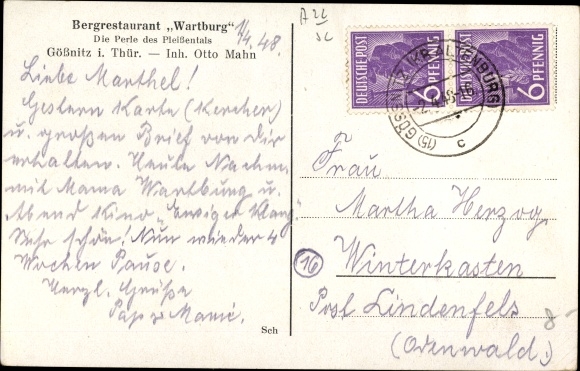 Bergrestaurant „Wartburg"
Die Perle des Pleißentals
Gößnitz i. Thür. — Inh. Otto Mahn
1/4.48.
Liebe Marthel!
Gestern Karte (Kercher)
u. großen Brief von Dir
erhalten. Heute Nachm.
mit Mama Wartburg u.
Abend Kino „Ewiger Klang"
Sehr schön! Nun wieder 4
Wochen Pause.
Herzl. Grüße
Papa
Sch
A 26
DEUTSCHE POST
6 PFENNIG
DEUTSCHE POST
6 PFENNIG
(15) GÖSSNITZ (KR. ALTENBURG)
c
Frau
Martha Herzog
16
Winterkasten
Post Lindenfels
(Odenwald.)
8-